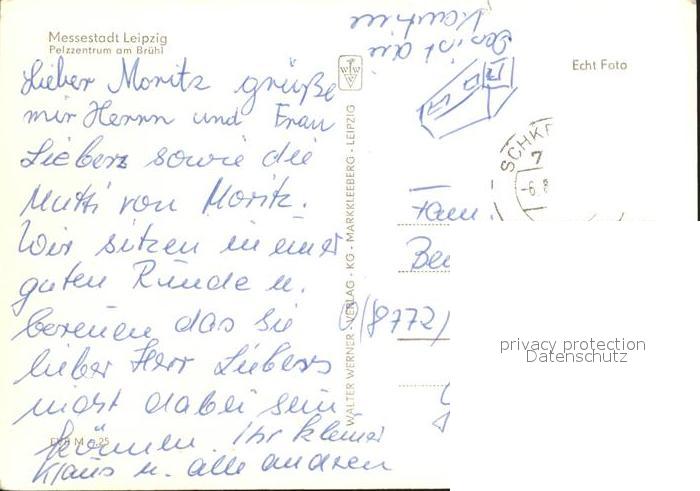 Messestadt Leipzig
Pelzzentrum am Brühl
Lieber Moritz grüße
mir Herrn und Frau
Liebers sowie die
Mutti von Moritz.
Wir sitzen in einer
guten Runde u.
bereuen das Sie
lieber Herr Liebers
nicht dabei sein
können. Ihr kleiner
Klaus u. alle anderen
EVP M 0,25
VERLAG WALTER WERNER KG · MARKKLEEBERG · LEIPZIG
Das ist die
Kantine
Echt Foto
SCHK
7
-6.8
Fam.
Be
(8772)
privacy protection
Datenschutz